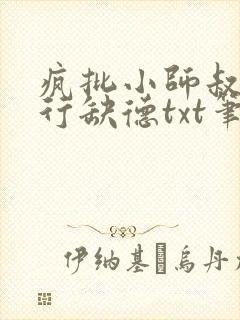 疯批小師叔
行缺德txt筆
伊纳基·烏丹